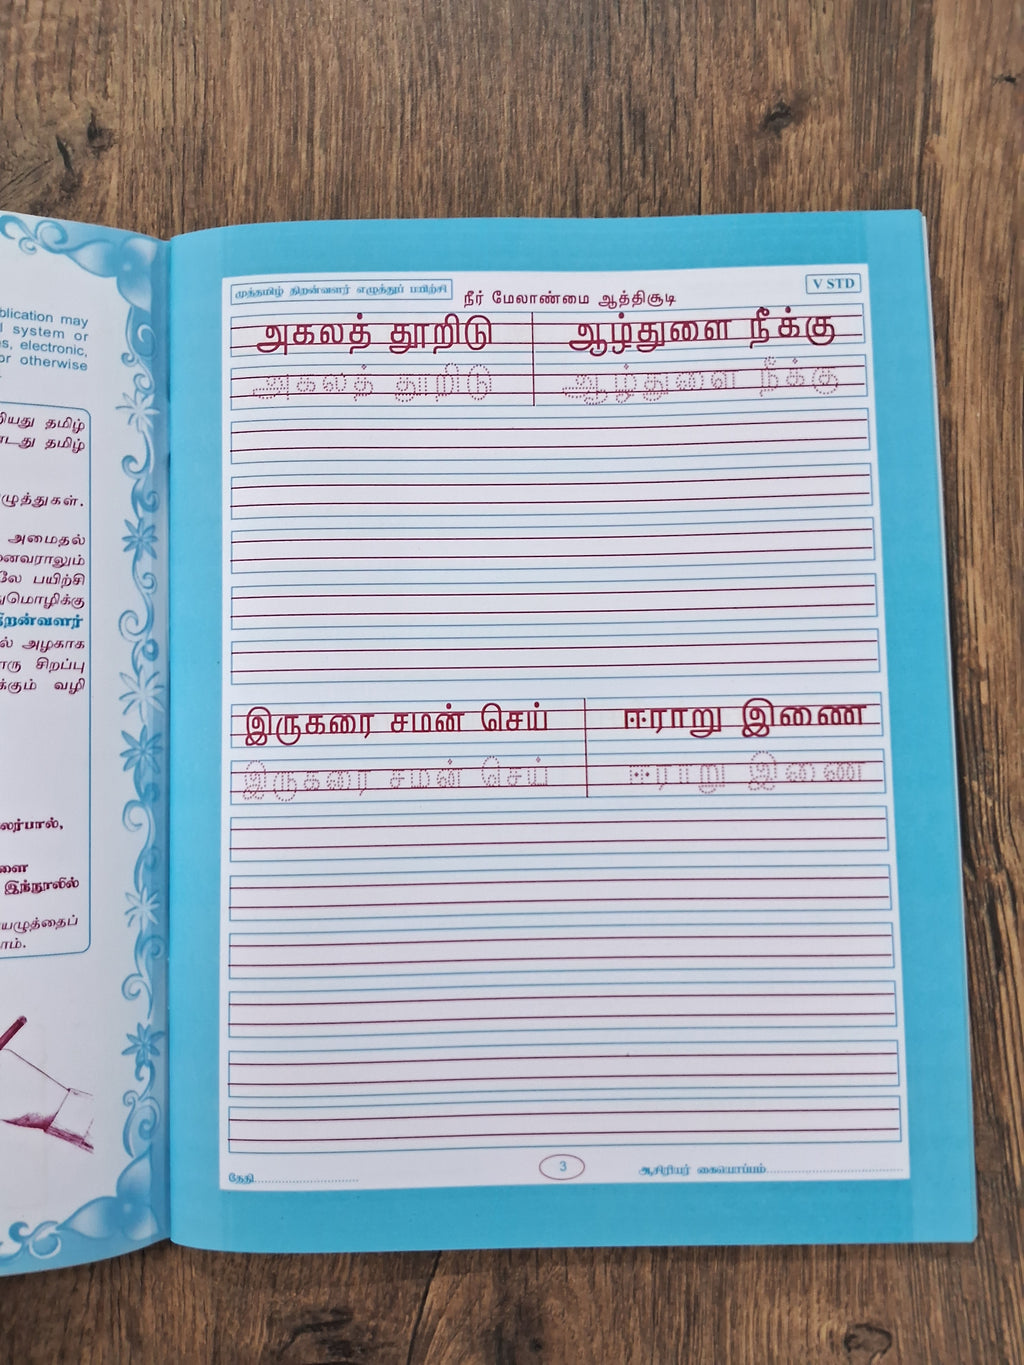 blication may
system or
s, electronic,
or otherwise
தமிழ்
தமிழ்
அமைதல்
பயிற்சி
அழகாக
சிறப்பு
வழி
இந்நூலில்
முத்தமிழ் திறன்வளர் எழுத்துப் பயிற்சி
நீர் மேலாண்மை ஆத்திசூடி
V STD
அகலத் தூறிடு ஆழ்துளை நீக்கு
அகலத் தூறிடு ஆழ்துளை நீக்கு
இருகரை சமன் செய் ஈராறு இணை
இருகரை சமன் செய் ஈராறு இணை
தேதி
3
ஆசிரியர் கையொப்பம்